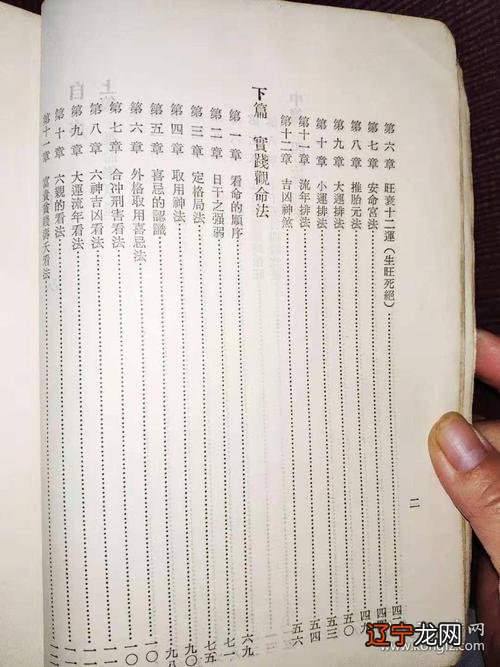 第六章 旺衰十二運（生旺死絕）
第七章 安命宮法
第八章 推胎元法 四九
第九章 大運排法 五〇
第十章 小運排法 五三
第十一章 流年排法 五四
第十二章 吉凶神煞 五六
下篇 實踐觀命法
第一章 看命的順序 六九
第二章 日干之强弱 七一
第三章 定格局法 七五
第四章 取用神法
第五章 喜忌的認識
第六章 外格取用喜忌法
第七章 合冲刑害看法
第八章 六神吉凶看法
第九章 大運流年看法
第十章 六親的看法
第十一章 富貴貧賤壽夭看法
二
辽宁龙网
www.kongfz.com